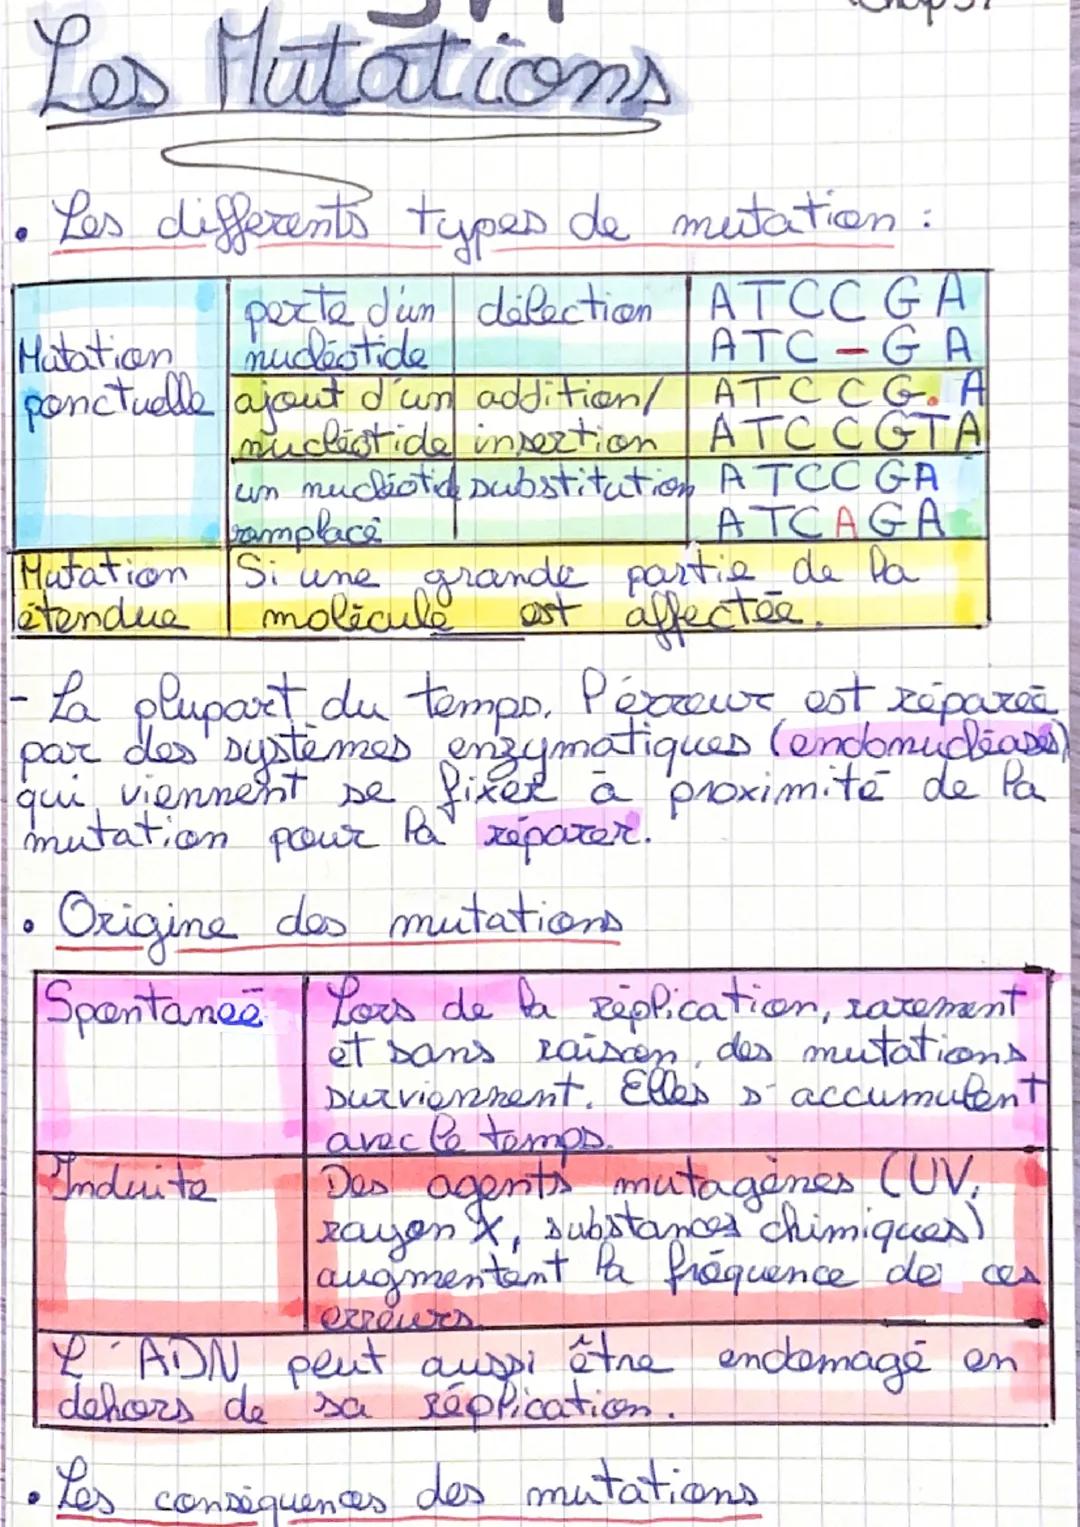 SVT
Les Mutations
• Les differents types de mutation :
Mutation ponctuelle
perte d'un nucléotide
délection
ATCCGA
ATC-GA
ajout d'un nucléotide
addition/
insertion
ATCCG.A
ATCCGTA
un nucléotid
ramplacé
substitution
ATCCGA
ATCAGA
Mutation étendue
Si une grande partie de la
molécule est affectée.
- La plupart du temps, l'érreur est réparée
par des systèmes enzymatiques (endonucléases)
qui viennent se fixer à proximité de la
mutation pour la réparer.
• Origine des mutations
Spontaneé
Lors de la réplication, rarement
et sans raison, des mutations
surviennent. Elles s'accumulent
avec le temps.
Induite
Des agents mutagènes (UV,
rayon X, substances chimiques)
augmentent la fréquence de ces
erreurs.
L'ADN peut aussi être endomagé en
dehors de sa réplication.
• Les conséquences des mutations